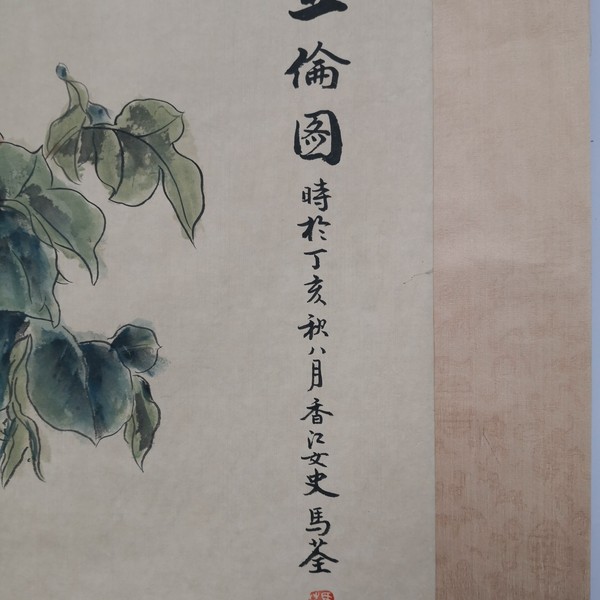 倫圖
時於丁亥秋八月香江女史馬荃